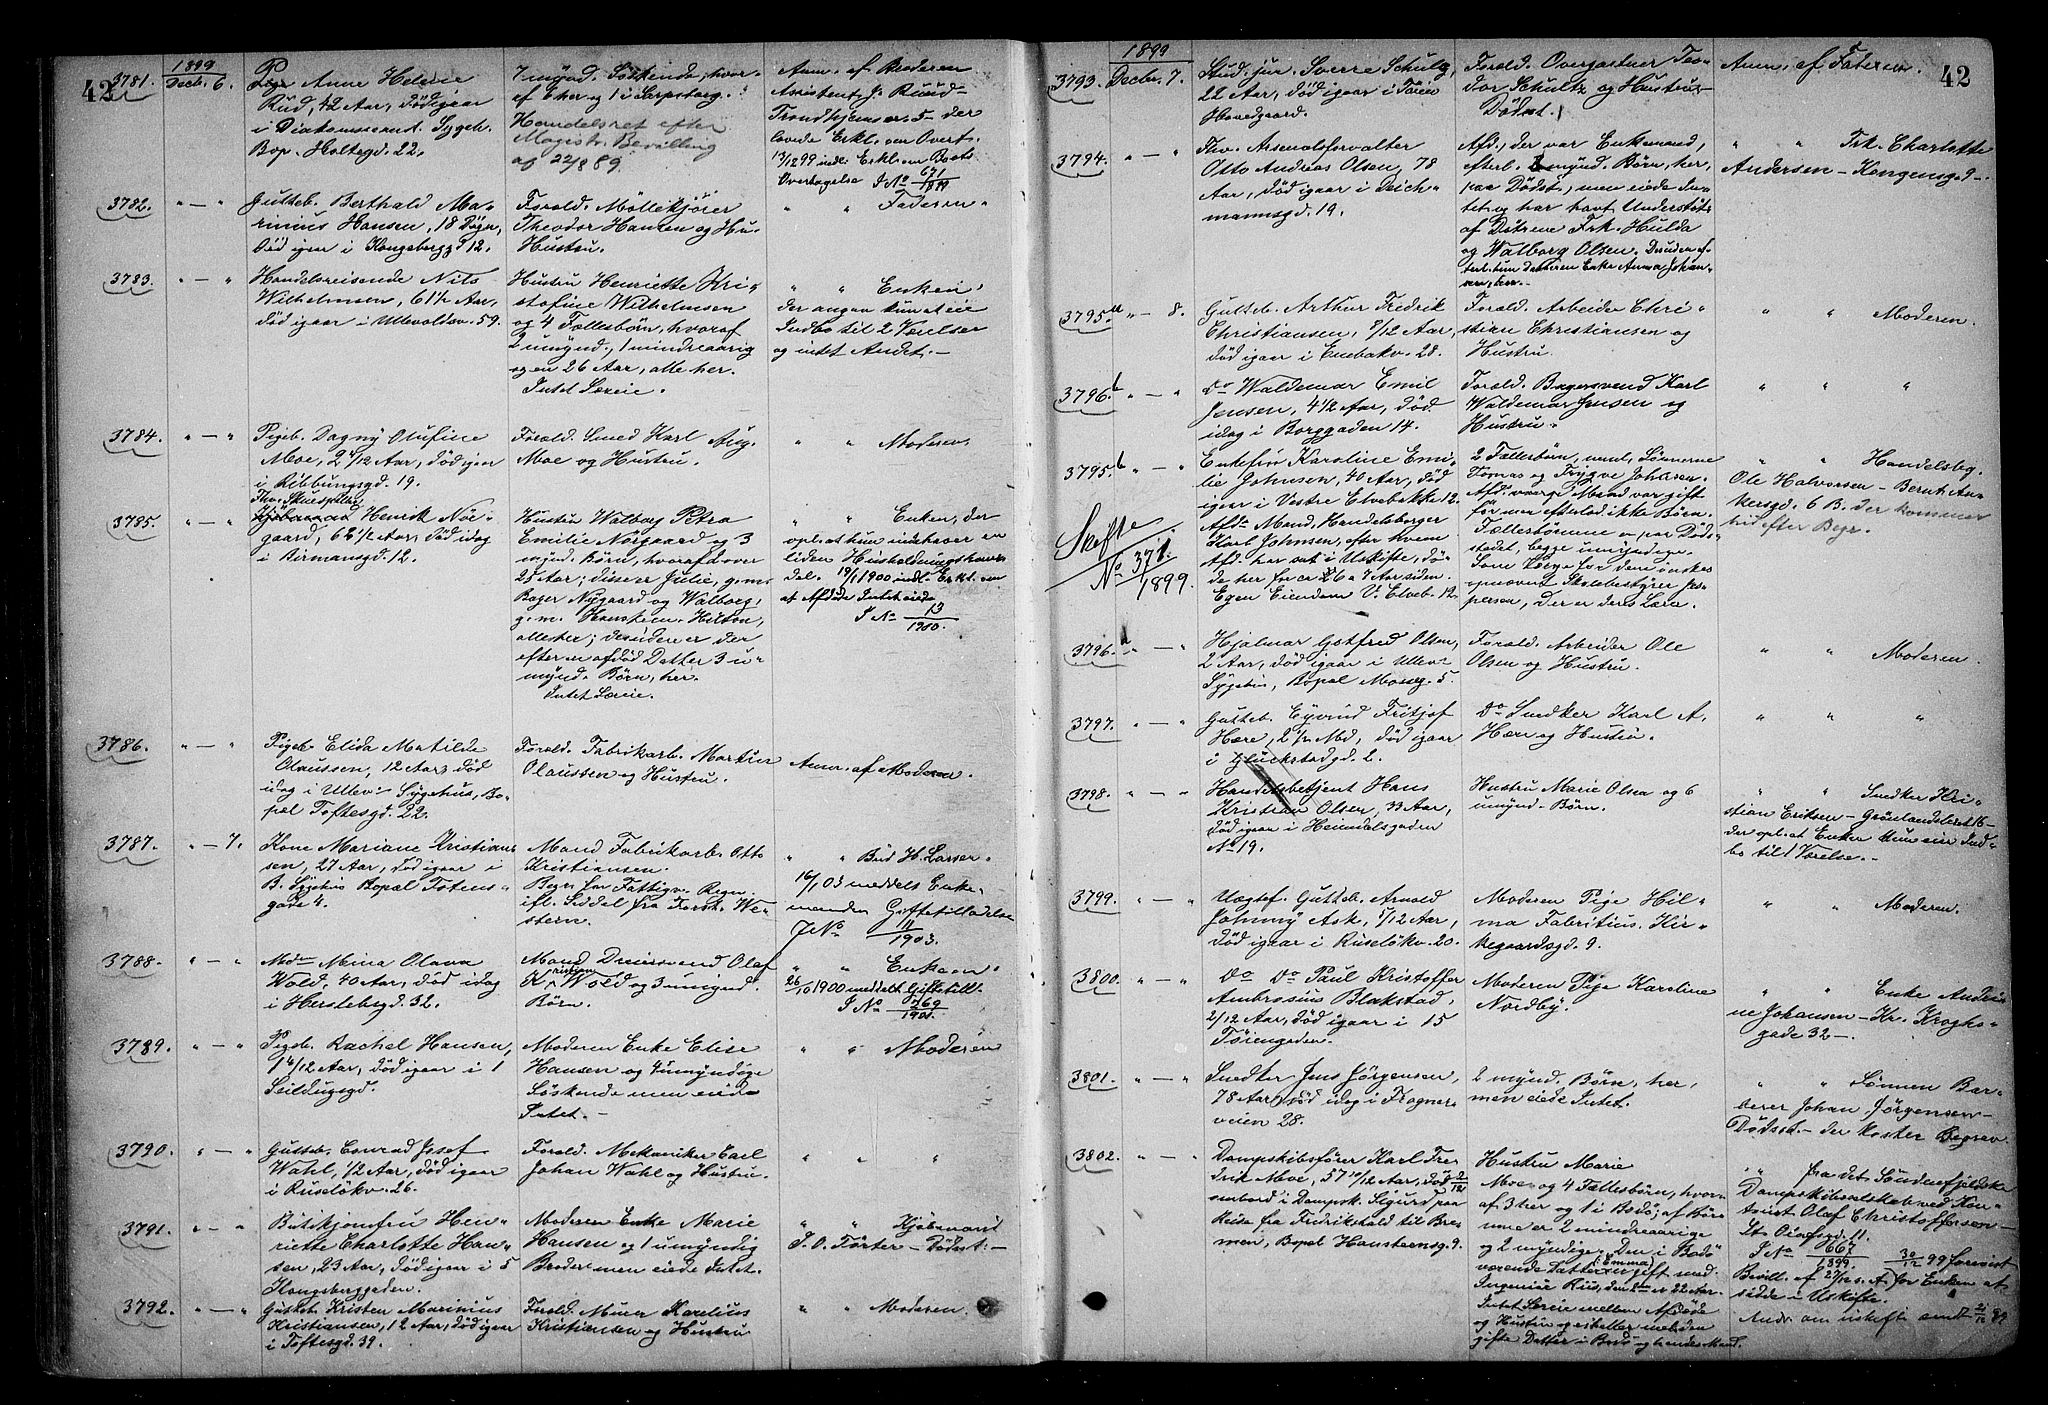 42
1899
3781. Decbr. 6.
Pige Anne Helene
Rud, 42 Aar, død igaar
i Diakonisseanst. Sygeh.
Bop. Holtegd. 22.
7 mynd. Søskende, hvor-
af 6 her og 1 i Sarpsborg.
Handelsret efter
Magistr. Bevilling
af 22/8 89.
Anm. af Broderen
Assistent J. Ruud
Trondhjemsv. 5 der
lovede Erkl. om Overt.
13/12 99 indl. Erkl. om Boets
Overtagelse J No 671/1899
3782. " — "
Gutteb. Berthald Ma-
rinius Hansen, 18 Døgn,
død igaar i Kongsbergg. 12.
Foræld. Møllekjører
Theodor Hansen og Hu-
Hustru.
" " Faderen
3783. " — "
Handelsreisende Nils
Wilhelmsen, 61 1/2 Aar,
død igaar i Ullevoldsv. 59.
Hustru Henriette Kri-
stofine Wilhelmsen
og 4 Fællesbørn, hvoraf
2 umynd., 1 mindreaarig
og en 26 Aar, alle her.
Intet Særeie.
" " Enken,
der angav kun at eie
Indbo til 2 Værelser
og intet Andet.—
3784. " — "
Pigeb. Dagny Olufine
Moe, 2 4/12 Aar, død igaar
i Ribbungsgd. 19.
Foræld. Smed Karl Aug.
Moe og Hustru.
" " Moderen.
3785. " — "
Fhv. Skuespiller
Henrik Nör-
gaard, 66 1/2 Aar, død idag
i Birmansgd. 12.
Hustru Walborg Petra
Emilie Nørgaard og 3
mynd. Børn, hvoraf d over
25 Aar; disse er Julie, g. m.
Bager Nygaard og Walborg,
g. m. Hilton,
alle her; desuden er der
efter en afdød Datter 3 u-
mynd. Børn, her.
Intet Særeie.
" " Enken, der
opl. at kun indehaver en
liden Husholdningshan-
del. 19/1 1900 indl. Erkl. om
at Afdøde Intet eiede
J No 13/1900.
3786. " — "
Pigeb. Elida Matilde
Olaussen, 12 Aar, død
idag i Ullev. Sygehus, Bo-
pæl Toftesgd. 22.
Foræld. Fabrikarb. Martin
Olaussen og Hustru.
Anm. af Moderen.
3787. " — 7.
Kone Mariane Kristian-
sen, 27 Aar, død igaar i
B. Sygehus Bopæl Totens-
gade 4.
Mand Fabrikarb. Otto
Kristiansen.
Begr. for Fattigv. Regn.
ifl. Seddel fra Forst. We-
stern.
" " Bud H. Larsen
16/1 03 meddelt Enke-
manden Giftetilladelse
J No 11/1903.
3788. " — "
Mdm Mina Olava
Wold, 40 Aar, død idag
i Herslebsgd. 32.
Mand Dreiersvend Olaf
Kristian Wold og 3 umynd.
Børn.
" " Enkem.
26/10 1900 meddelt Giftetill.
J No 269/1900.
3789. " — "
Pigeb. Rachel Hansen,
1 4/12 Aar, død igaar i 1
Seildugsgd.
Moderen Enke Elise
Hansen og 4 umyndige
Søskende men eiede
Intet.—
" " Moderen
3790. " — "
Gutteb. Conrad Josef
Wahl, 1/2 Aar, død igaar
i Ruseløkv. 26.
Foræld. Mekaniker Carl
Johan Wahl og Hustru.
" " "
3791. " — "
Butikjomfru Hen-
riette Charlotte Han-
sen, 23 Aar, død igaar i 5
Kongsberggaden.
Moderen Enke Marie
Hansen og 1 umyndig
Broder men eiede Intet.
" " Kjøbmand
P. O. Förter — Dødsst.—
3792. " — "
Gutteb. Kristen Marinius
Kristiansen, 12 Aar, død igaar
i Toftesgd. 39.
Foræld. Murer Karelius
Kristiansen og Hustru
" " Moderen.
42
1899
3793. Decbr. 7.
Stud. jur. Sverre Schultz,
22 Aar, død igaar i Tøien
Hovedgaard.
Foræld. Overgartner Teo-
dor Schultz og Hustru
Dødsst.
Anm. af Faderen.
3794. " — "
Fhv. Arsenalforvalter
Otto Andreas Olsen, 78
Aar, død igaar i Deich-
mannsgd. 19.
Afd., der var Enkemand,
efterl. mynd. Børn, her,
paa Dødsst., men eiede In-
tet og har havt Understøt.
af Døtrene Frk. Hulda
og Walborg Olsen. Desuden ef-
terl. han Datteren Enke Anna Johan-
sen, her.—
" " Frk. Charlotte
Andersen — Kongensgd.—
3795 a " — 8.
Gutteb. Arthur Fredrik
Christiansen, 7/12 Aar,
død igaar i Enebakv. 28.
Foræld. Arbeider Chri-
stian Christiansen og
Hustru.
" " Moderen.
3796. b " — "
Do Waldemar Emil
Jensen, 4 1/2 Aar, død
idag i Borggaden 14.
Foræld. Bagersvend Karl
Waldemar Jensen og
Hustru.
" " "
3795. b " — "
Skifte
No 371./1899.
Enkefru Karoline Emi-
lie Johnsen, 40 Aar, død
igaar i Vestre Elvebakke 12.
Afdm Mand, Handelsborger
Karl Johnsen, efter hvem
Afd. har sat i Uskifte, dø-
de her for ca 6 a 7 Aar siden.
Egen Eiendom V. Elveb. 12.
2 Fællesbørn, navnl. Sønnerne
Tomas og Trygve Johnsen.
Afd. vaage Mand var gift
før men efterlod ikke Børn.
Fællesbørnene er paa Døds-
stedet, begge umyndige.
Som Værge for dem ønskes
opnævnt Skolebestyrer Jes-
persen, der er deres Lærer.
" " Handelsbg.
Ole Halvorsen — Bernt An-
kersgd. 6 B. der kommer
hid efter Begr.
3796. a " — "
Hjalmar Gotfred Olsen,
2 Aar, død igaar i Ullev.
Sygehus, Bopæl Mosseg. 5.
Foræld. Arbeider Ole
Olsen og Hustru.
" " Moderen.
3797. " — "
Gutteb. Eyvind Fritjof
Hære, 2 1/2 Md., død igaar
i Glückstadgd. 2.
Do Snedker Karl A.
Hære og Hustru.
" " "
3798. " — "
Handelsbetjent Hans
Kristian Olsen, 33 Aar,
død igaar i Heimdalsgaden
No 19.
Hustru Marie Olsen og 6
umynd. Børn.
" " Snedker Kri-
stian Eriksen — Grønlandsleret 16—
der opl. at Enken kun eier Ind-
bo til 1 Værelse.—
3799. " — "
Uægtef. Gutteb. Arnold
Johnny Ask, 5/12 Aar,
død igaar i Ruseløkv. 20.
Moderen Pige Hil-
ma Fabritius. Kir-
kegaardsgd. 9.
" " Moderen.
3800. " — "
Do Do Paul Kristoffer
Ambrosius Blakstad,
2/12 Aar, død igaar i 15
Tøiengaden.
Moderen Pige Karoline
Nordby.
" " Enke Andri-
ne Johansen — Kr. Kroghs-
gade 32—.
3801. " — "
Snedker Jens Jørgensen,
78 Aar, død idag i Frogner-
veien 28.
2 mynd. Børn, her,
men eiede Intet.
" " Sønnen Bar-
berer Johan Jørgensen—
Dødsst.— der koster Begrav.
3802. " — "
Dampskibsfører Karl Fre-
drik Moe, 57 10/12 Aar, død 2/12
ombord i Dampsk. Sigurd paa
Reise fra Fredrikshald til Bre-
men, Bopæl Hansteensg. 9.
Hustru Marie
Moe og 4 Fællesbørn, hvor-
af 3 her og 1 i Bodø; af Bør-
nene er 2 mindreaarige
og 2 myndige. Den i Bodø
værende Datter (Emma) er gift med
Ingeniør Riis, den er 22 Aar.
Intet Særeie mellem Afdøde
og Hustru og ei heller mel. den
gifte Datter i Bodø og hendes Mand.
" " fra det Søndenfjeldske
Dampskibsselskab ved Kon-
torist Olaf Christoffersen—
St. Olafsgd. 11.
J No 667/1899. 30/12 99 forevist
Bevill. af 27/12 s. A. for Enken at
sidde i Uskifte.
Andr. om uskift. 21/12 99